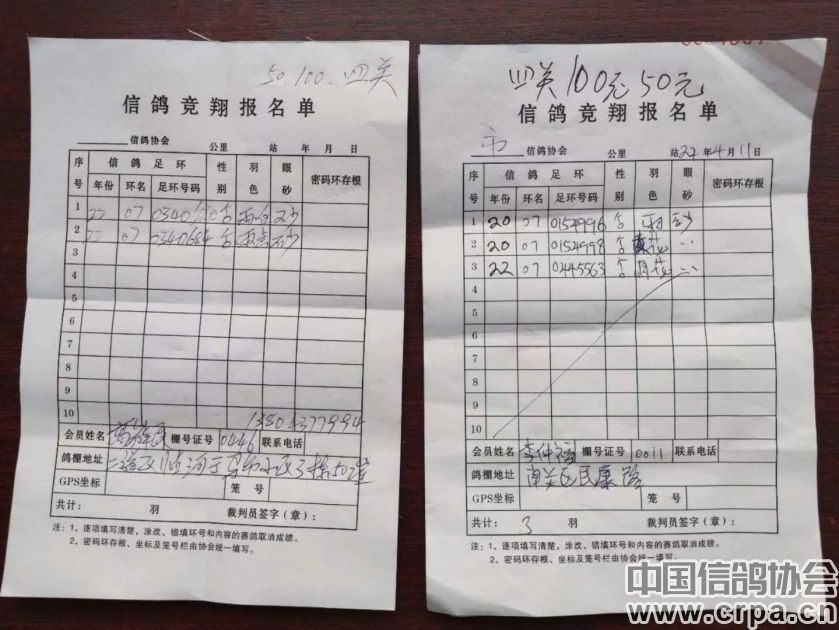 50.100.四关
信鸽竞翔报名单
信鸽协会 公里 站 年 月 日
序号 信鸽足环 性别 羽色 眼砂 密码环存根
年份 环名 足环号码
1 22 07 舍
2 22 07 0340654 舍 雨点
3
4
5
6
7
8
9
10
13504377994
会员姓名 棚号证号 0446 联系电话
鸽棚地址 二道区临河
GPS坐标 笼号
共计： 羽 裁判员签字（章）：
注：1、逐项填写清楚，涂改、错填环号和内容的赛鸽取消成绩。
2、密码环存根、坐标及笼号栏由协会统一填写。
四关100元50元
信鸽竞翔报名单
市 信鸽协会 公里 站22年4月11日
序号 信鸽足环 性别 羽色 眼砂 密码环存根
年份 环名 足环号码
1 20 07 0154996 舍 砂
2 20 07 0154998 舍 花 〃
3 22 07 0445563 舍 雨花 〃
4
5
6
7
8
9
10
会员姓名 李仲福 棚号证号 0011 联系电话
鸽棚地址 南关区民康路
GPS坐标 笼号
共计： 3 羽 裁判员签字（章）：
注：1、逐项填写清楚，涂改、错填环号和内容的赛鸽取消成绩。
2、密码环存根、坐标及笼号栏由协会统一填写。
中国信鸽协会
www.crpa.cn